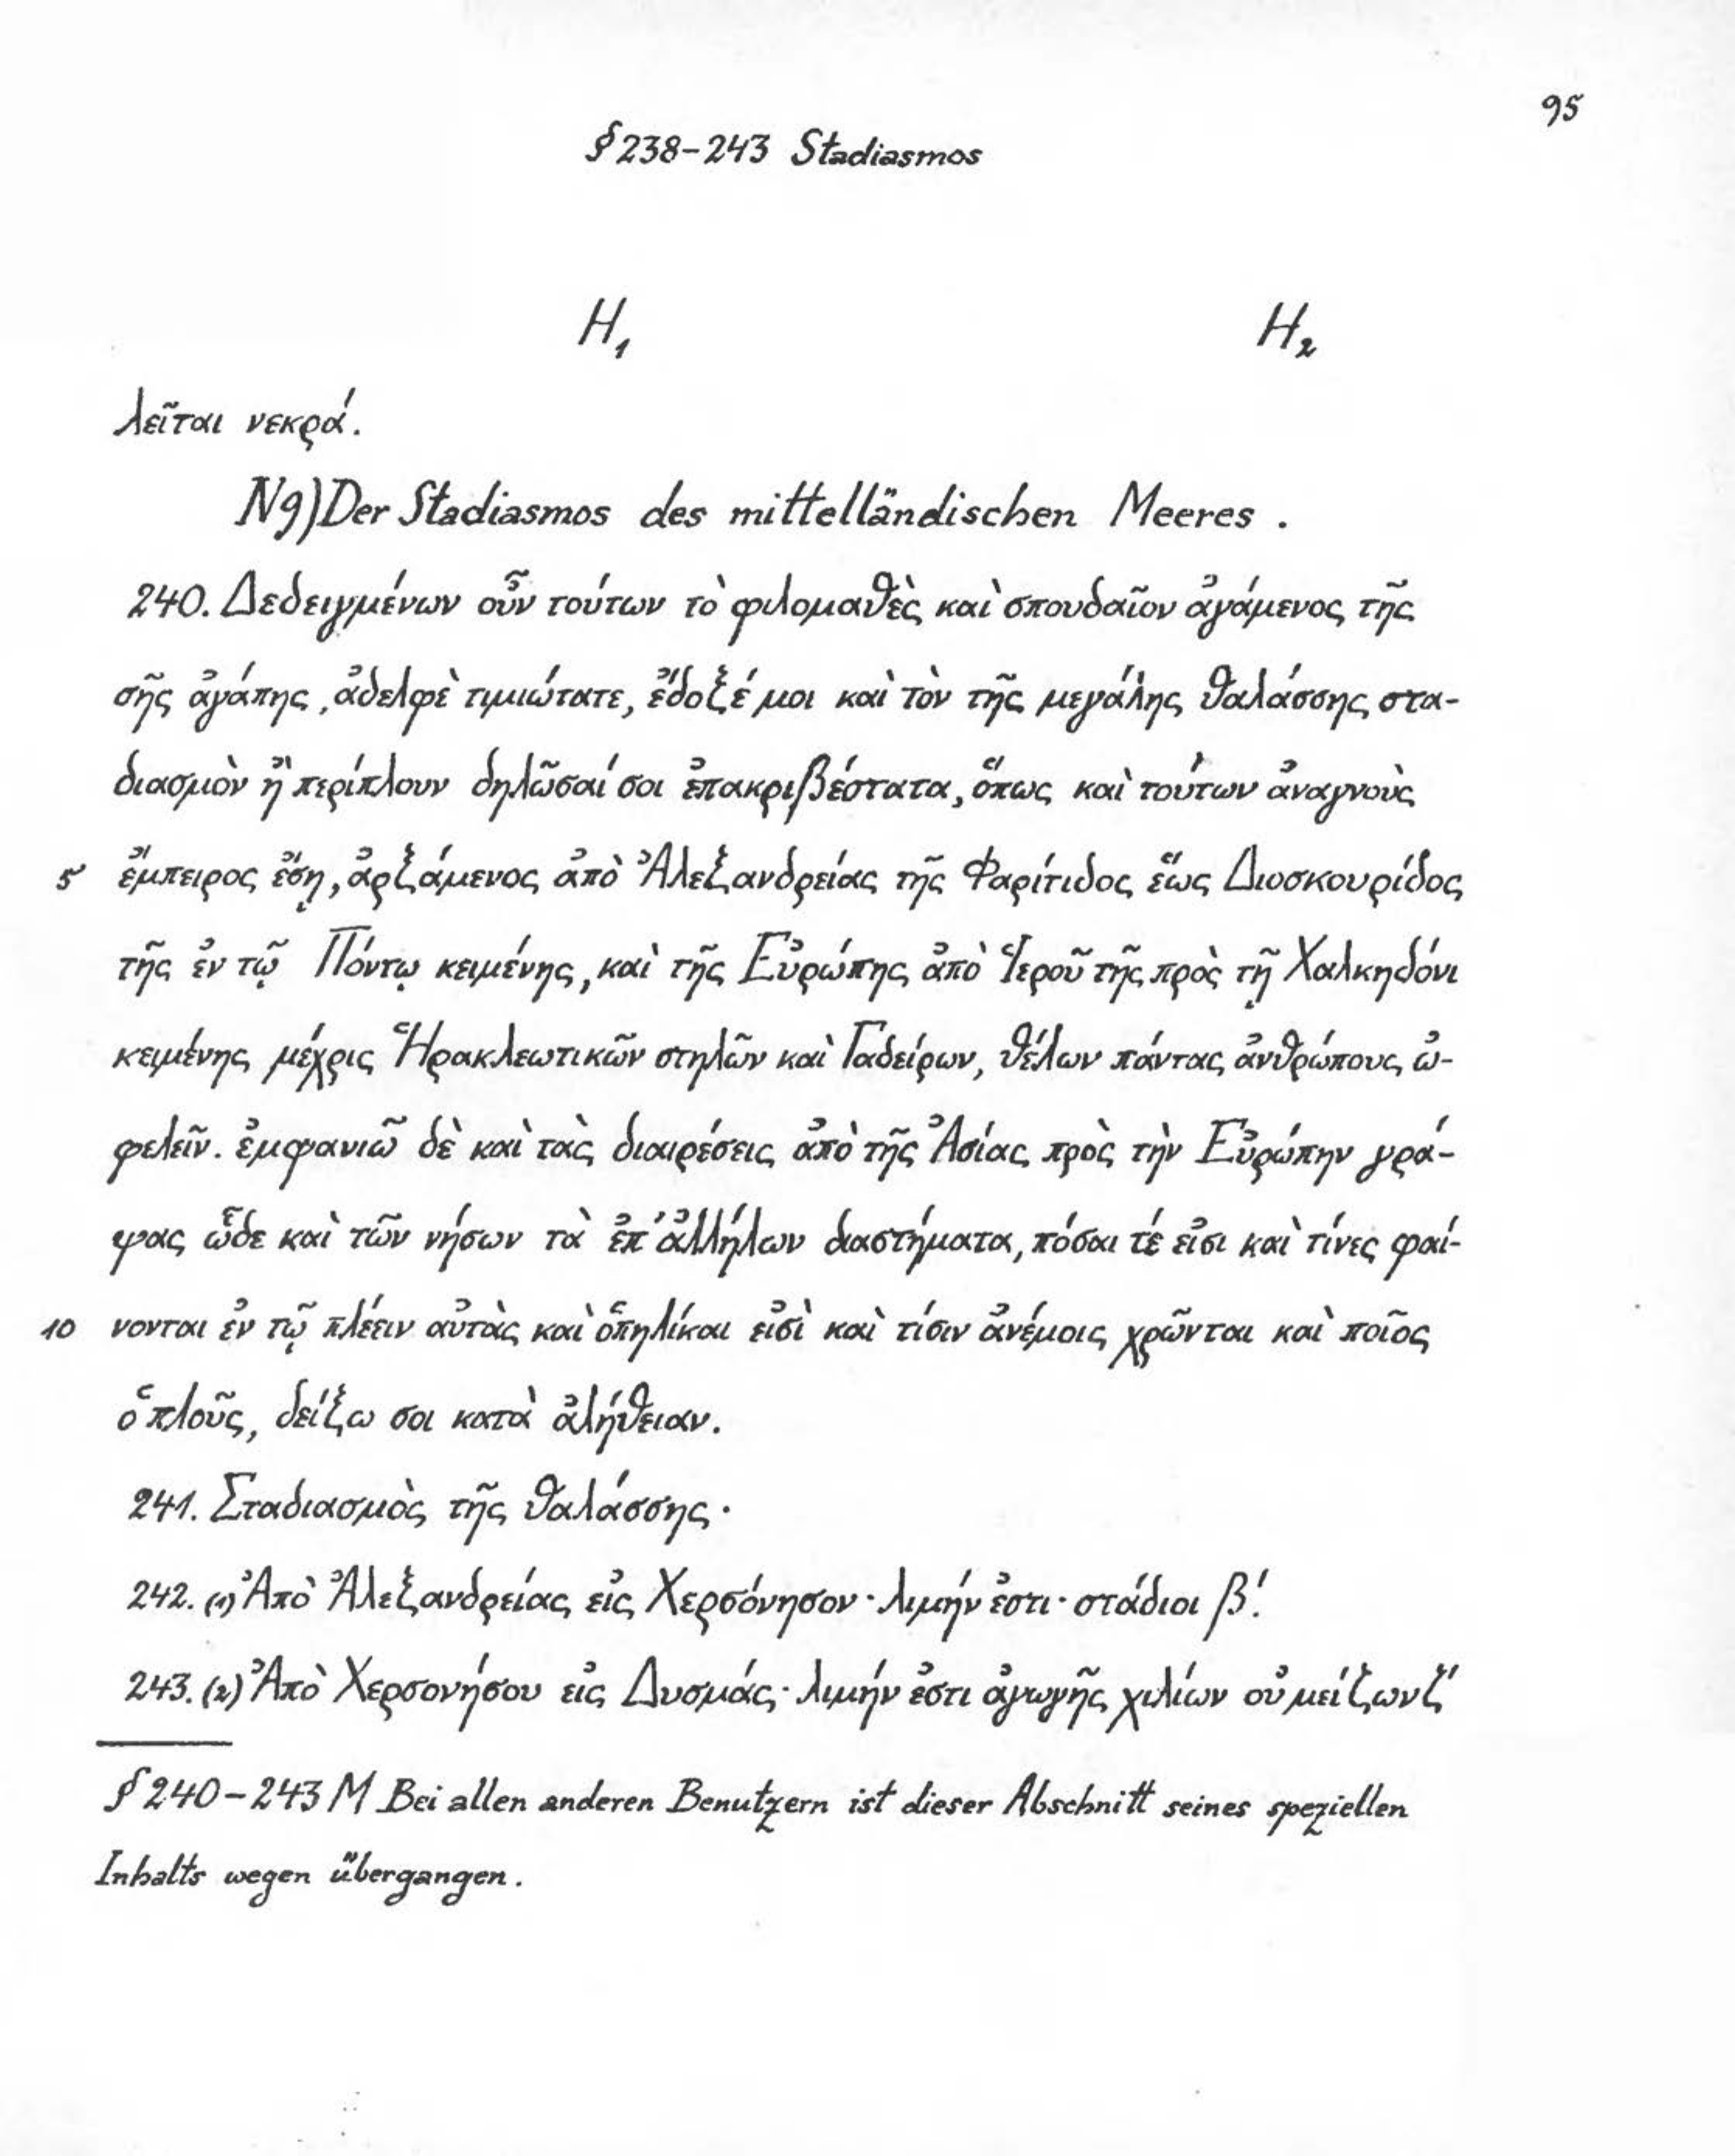 95
§ 238-243 Stadiasmos
H₁ H₂
λεῖται νεκρά.
N9) Der Stadiasmos des mittelländischen Meeres.
240. Δεδειγμένων οὖν τούτων τὸ φιλομαθὲς καὶ σπουδαῖον ἀγάμενος τῆς
σῆς ἀγάπης, ἀδελφὲ τιμιώτατε, ἔδοξέ μοι καὶ τὸν τῆς μεγάλης θαλάσσης στα-
διασμὸν ἢ περίπλουν δηλῶσαί σοι ἐπακριβέστατα, ὅπως καὶ τούτων ἀναγνοὺς
5 ἔμπειρος ἔσῃ, ἀρξάμενος ἀπὸ Ἀλεξανδρείας τῆς Φαρίτιδος ἕως Διοσκουρίδος
τῆς ἐν τῷ Πόντῳ κειμένης, καὶ τῆς Εὐρώπης ἀπὸ Ἱεροῦ τῆς πρὸς τῇ Χαλκηδόνι
κειμένης μέχρις Ἡρακλεωτικῶν στηλῶν καὶ Γαδείρων, θέλων πάντας ἀνθρώπους ὠ-
φελεῖν. ἐμφανιῶ δὲ καὶ τὰς διαιρέσεις ἀπὸ τῆς Ἀσίας πρὸς τὴν Εὐρώπην γρά-
ψας ὧδε καὶ τῶν νήσων τὰ ἐπ' ἀλλήλων διαστήματα, πόσαι τέ εἰσι καὶ τίνες φαί-
10 νονται ἐν τῷ πλέειν αὐτὰς καὶ ὁπηλίκαι εἰσὶ καὶ τίσιν ἀνέμοις χρῶνται καὶ ποῖος
ὁ πλοῦς, δείξω σοι κατὰ ἀλήθειαν.
241. Σταδιασμὸς τῆς θαλάσσης·
242. (1) Ἀπὸ Ἀλεξανδρείας εἰς Χερσόνησον· λιμήν ἐστι· στάδιοι β'.
243. (2) Ἀπὸ Χερσονήσου εἰς Δυσμάς· λιμήν ἐστι ἀγωγῆς χιλίων οὐ μείζων ζ'
§ 240-243 M Bei allen anderen Benutzern ist dieser Abschnitt seines speziellen
Inhalts wegen übergangen.